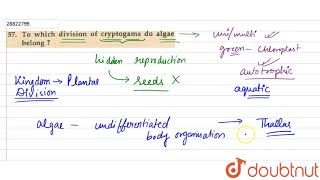 28822799
57. To which division of cryptogams do algae belong ?
uni/multi
green - chloroplast
hidden reproduction
autotrophic
seeds X
Kingdom → Plantae
aquatic
Division
algae - undifferentiated body organisation → Thallus
doubtnut